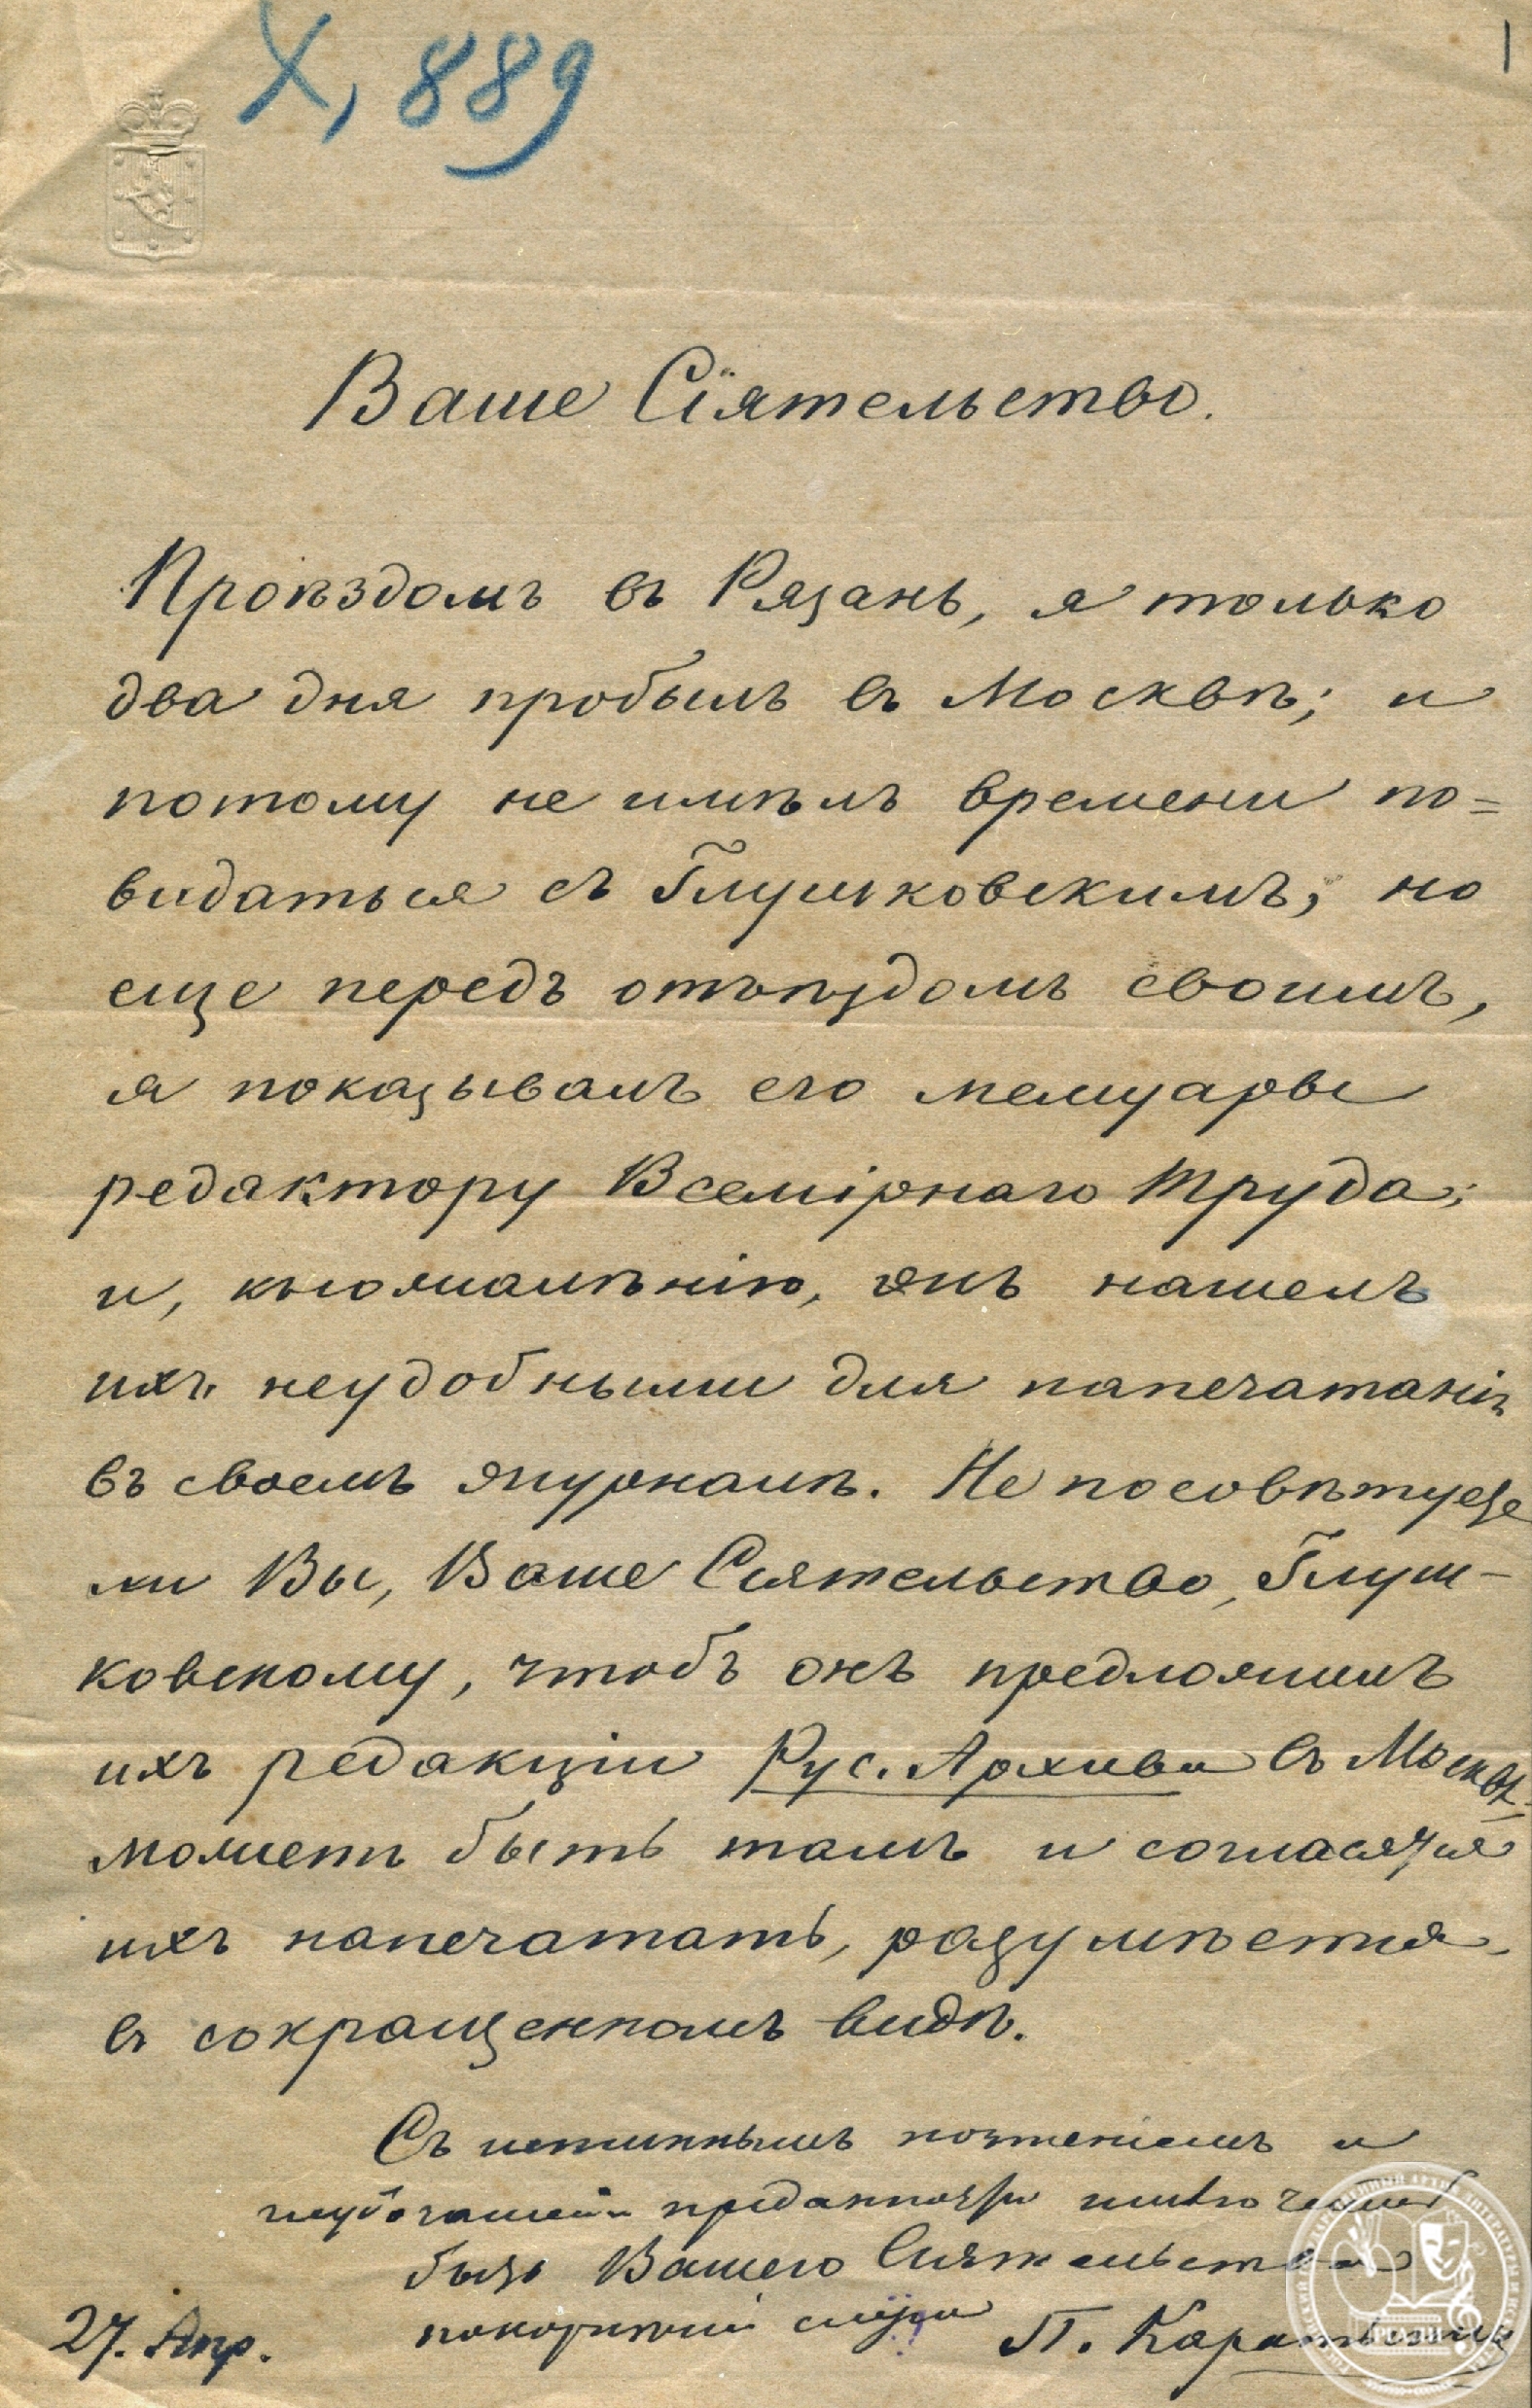 X, 889
1
Ваше Сіятельство.
Проѣздомъ въ Рязань, я только
два дня пробылъ въ Москвѣ; и
потому не имѣлъ времени по=
видаться съ Глушковскимъ; но
еще передъ отъѣздомъ своимъ,
я показывалъ его мемуары
редактору Всемірнаго Труда;
и, къ сожалѣнію, онъ нашелъ
ихъ неудобными для напечатанія
въ своемъ журналѣ. Не посовѣтуете
ли Вы, Ваше Сіятельство, Глуш-
ковскому, чтобъ онъ предложилъ
ихъ редакціи Рус. Архива въ Москвѣ;
можетъ быть тамъ и согласятся
ихъ напечатать, разумѣется,
въ сокращенномъ видѣ.
Съ истиннымъ почтеніемъ и
глубочайшей преданностью имѣю честь
быть Вашего Сіятельства
покорнѣйшій слуга П. Каратыгинъ
27. Апр.
РГАЛИ